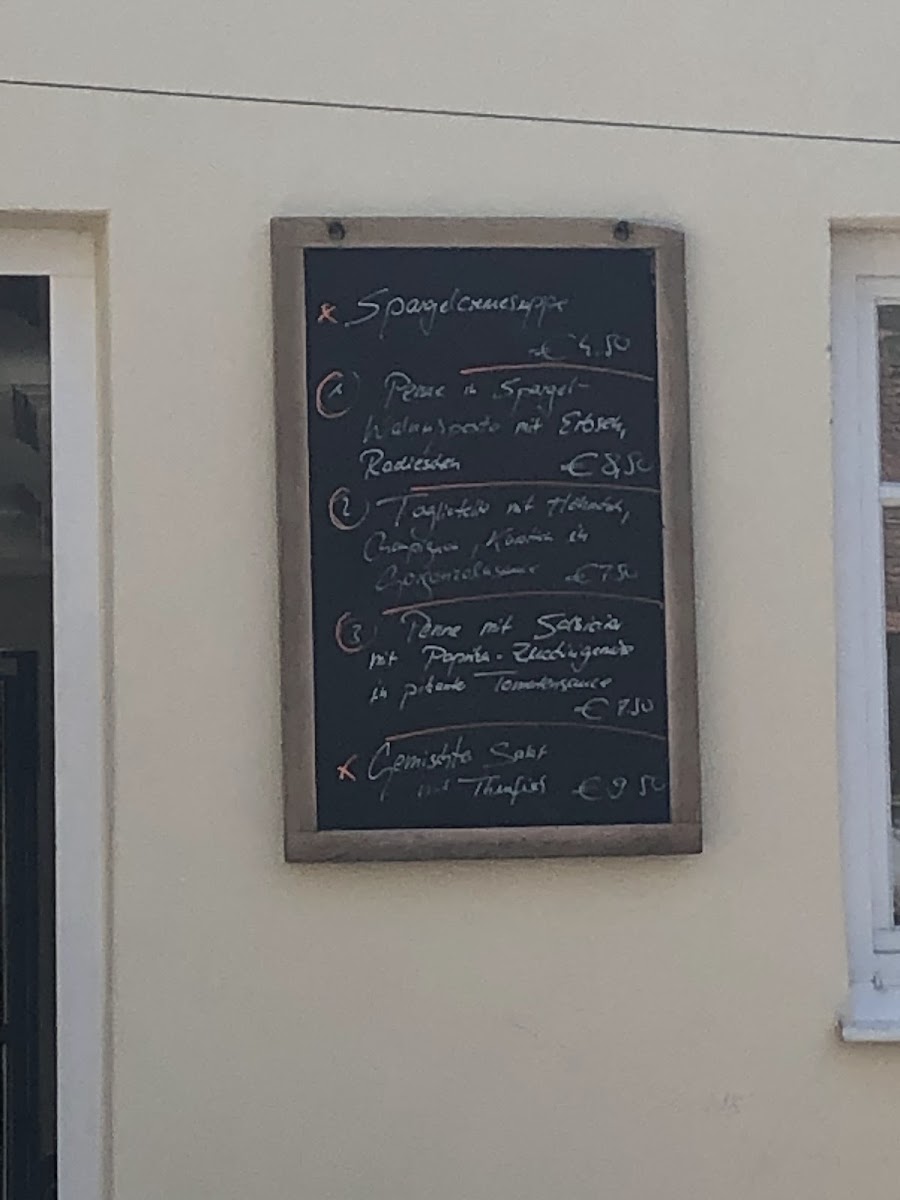 x Spargelcremesuppe
€ 4.50
1 Penne in Spargel-
Walnusspesto mit Erbsen,
Radieschen € 8,50
2 Tagliatelle mit
Champignon, Karotten in
Gorgonzolasauce € 7.50
3 Penne mit Salsiccia
mit Paprika-Zucchinigemüse
in pikante Tomatensauce
€ 7.50
x Gemischter Salat
mit Thunfisch € 9.50